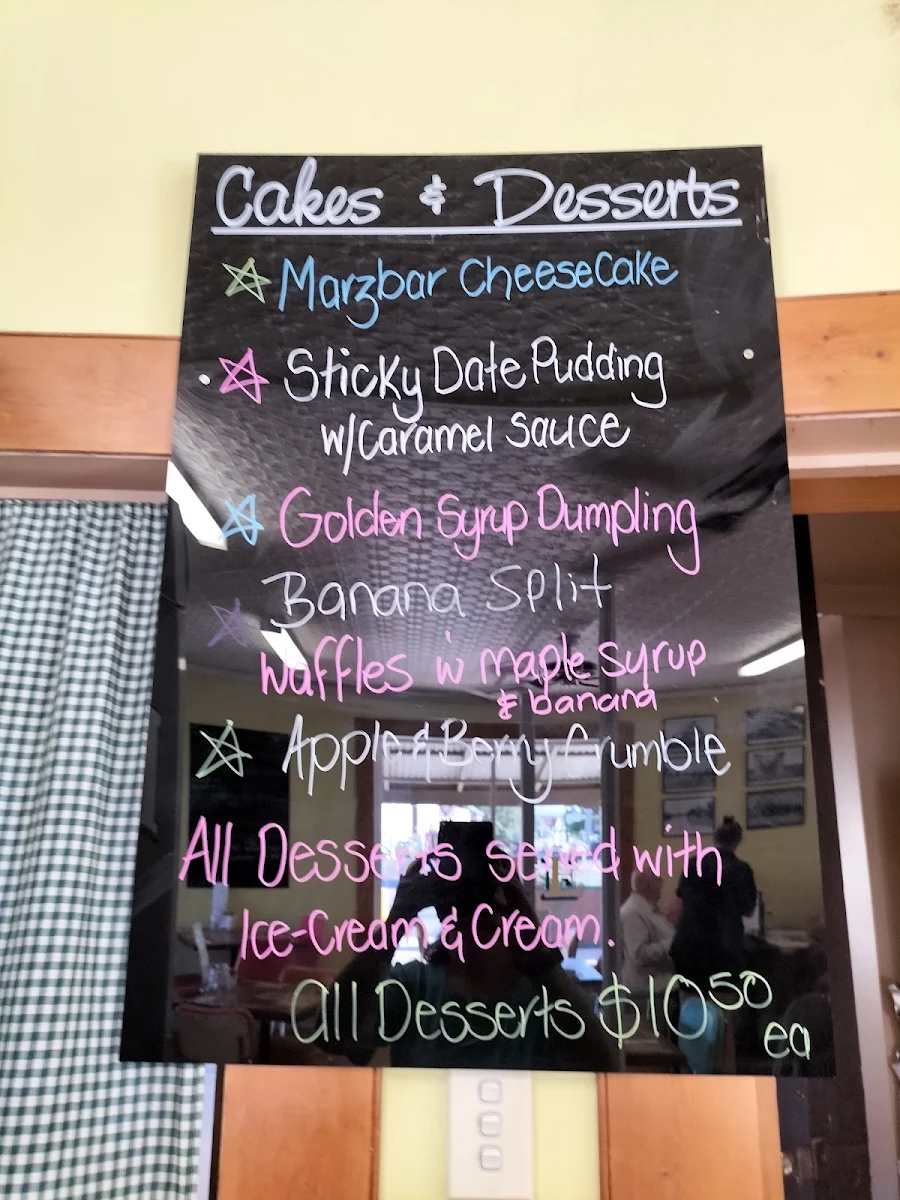 Cakes & Desserts
Marzbar CheeseCake
Sticky Date Pudding
w/Caramel Sauce
Golden Syrup Dumpling
Banana Split
Waffles w maple syrup
& banana
Apple & Berry Crumble
All Desserts served with
Ice-Cream & Cream.
All Desserts $10 50
ea